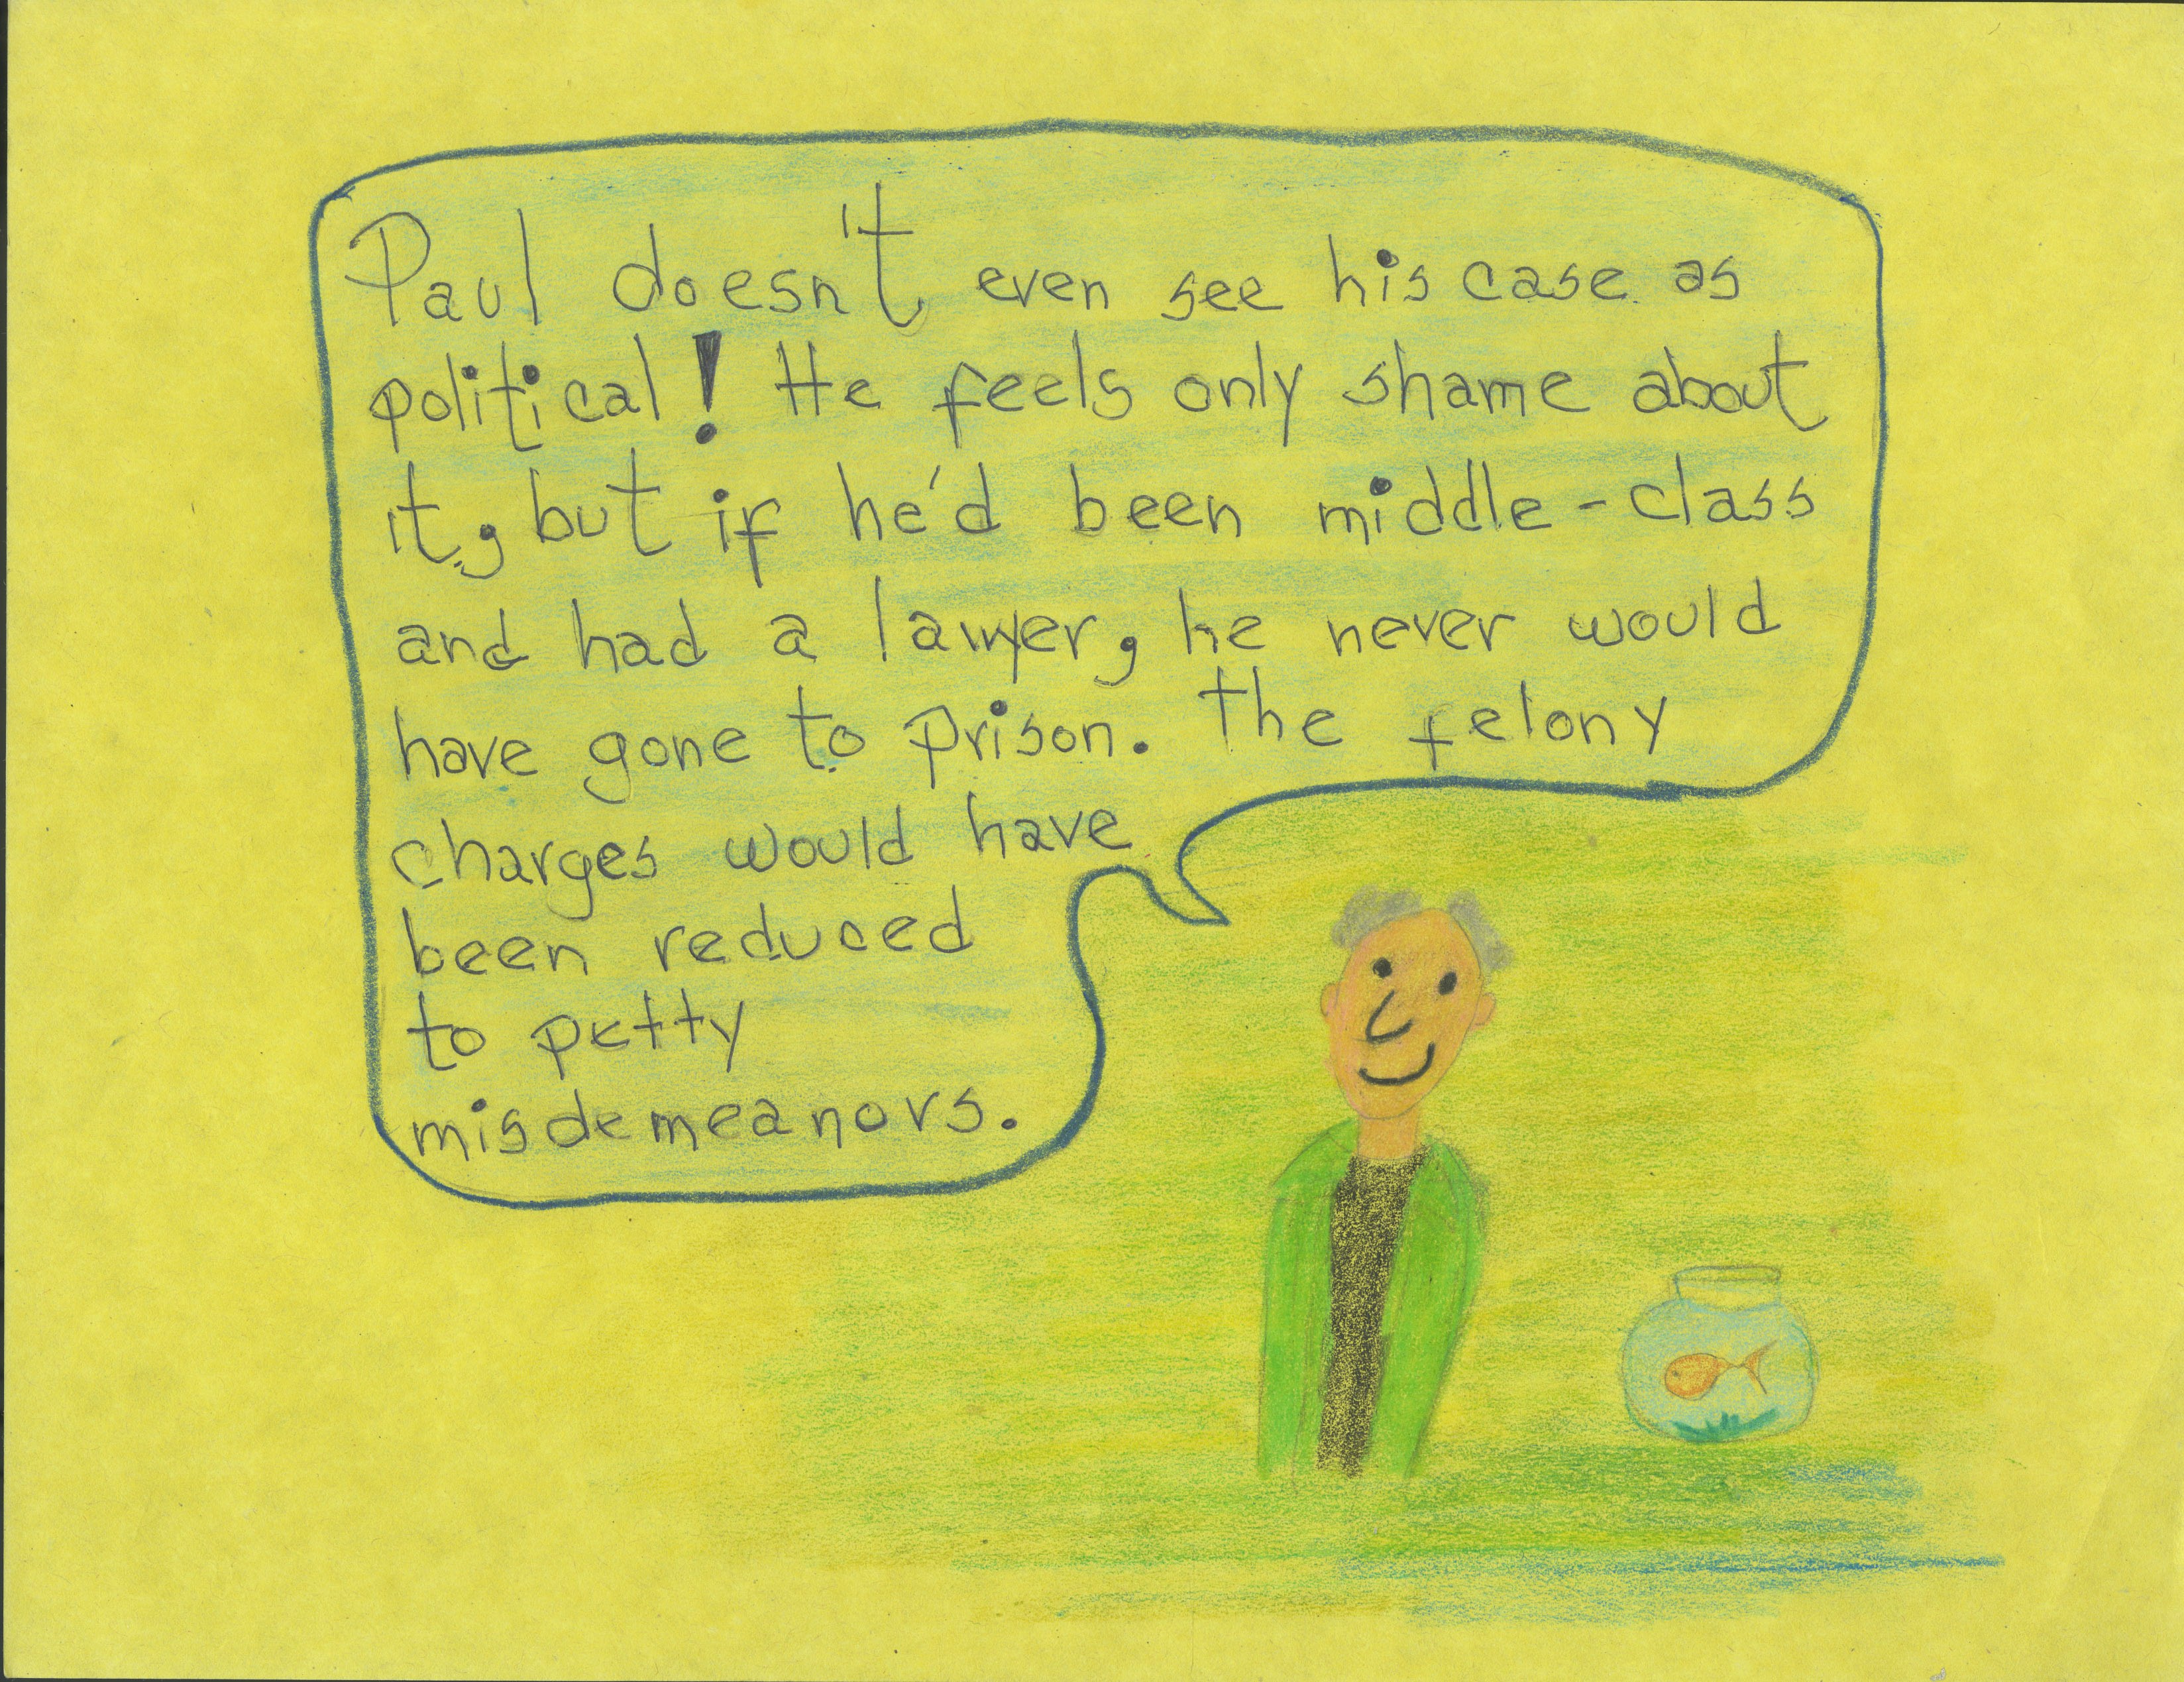 Paul doesn't even see his case as
political! He feels only shame about
it, but if he'd been middle-class
and had a lawyer, he never would
have gone to prison. The felony
charges would have
been reduced
to petty
misdemeanors.